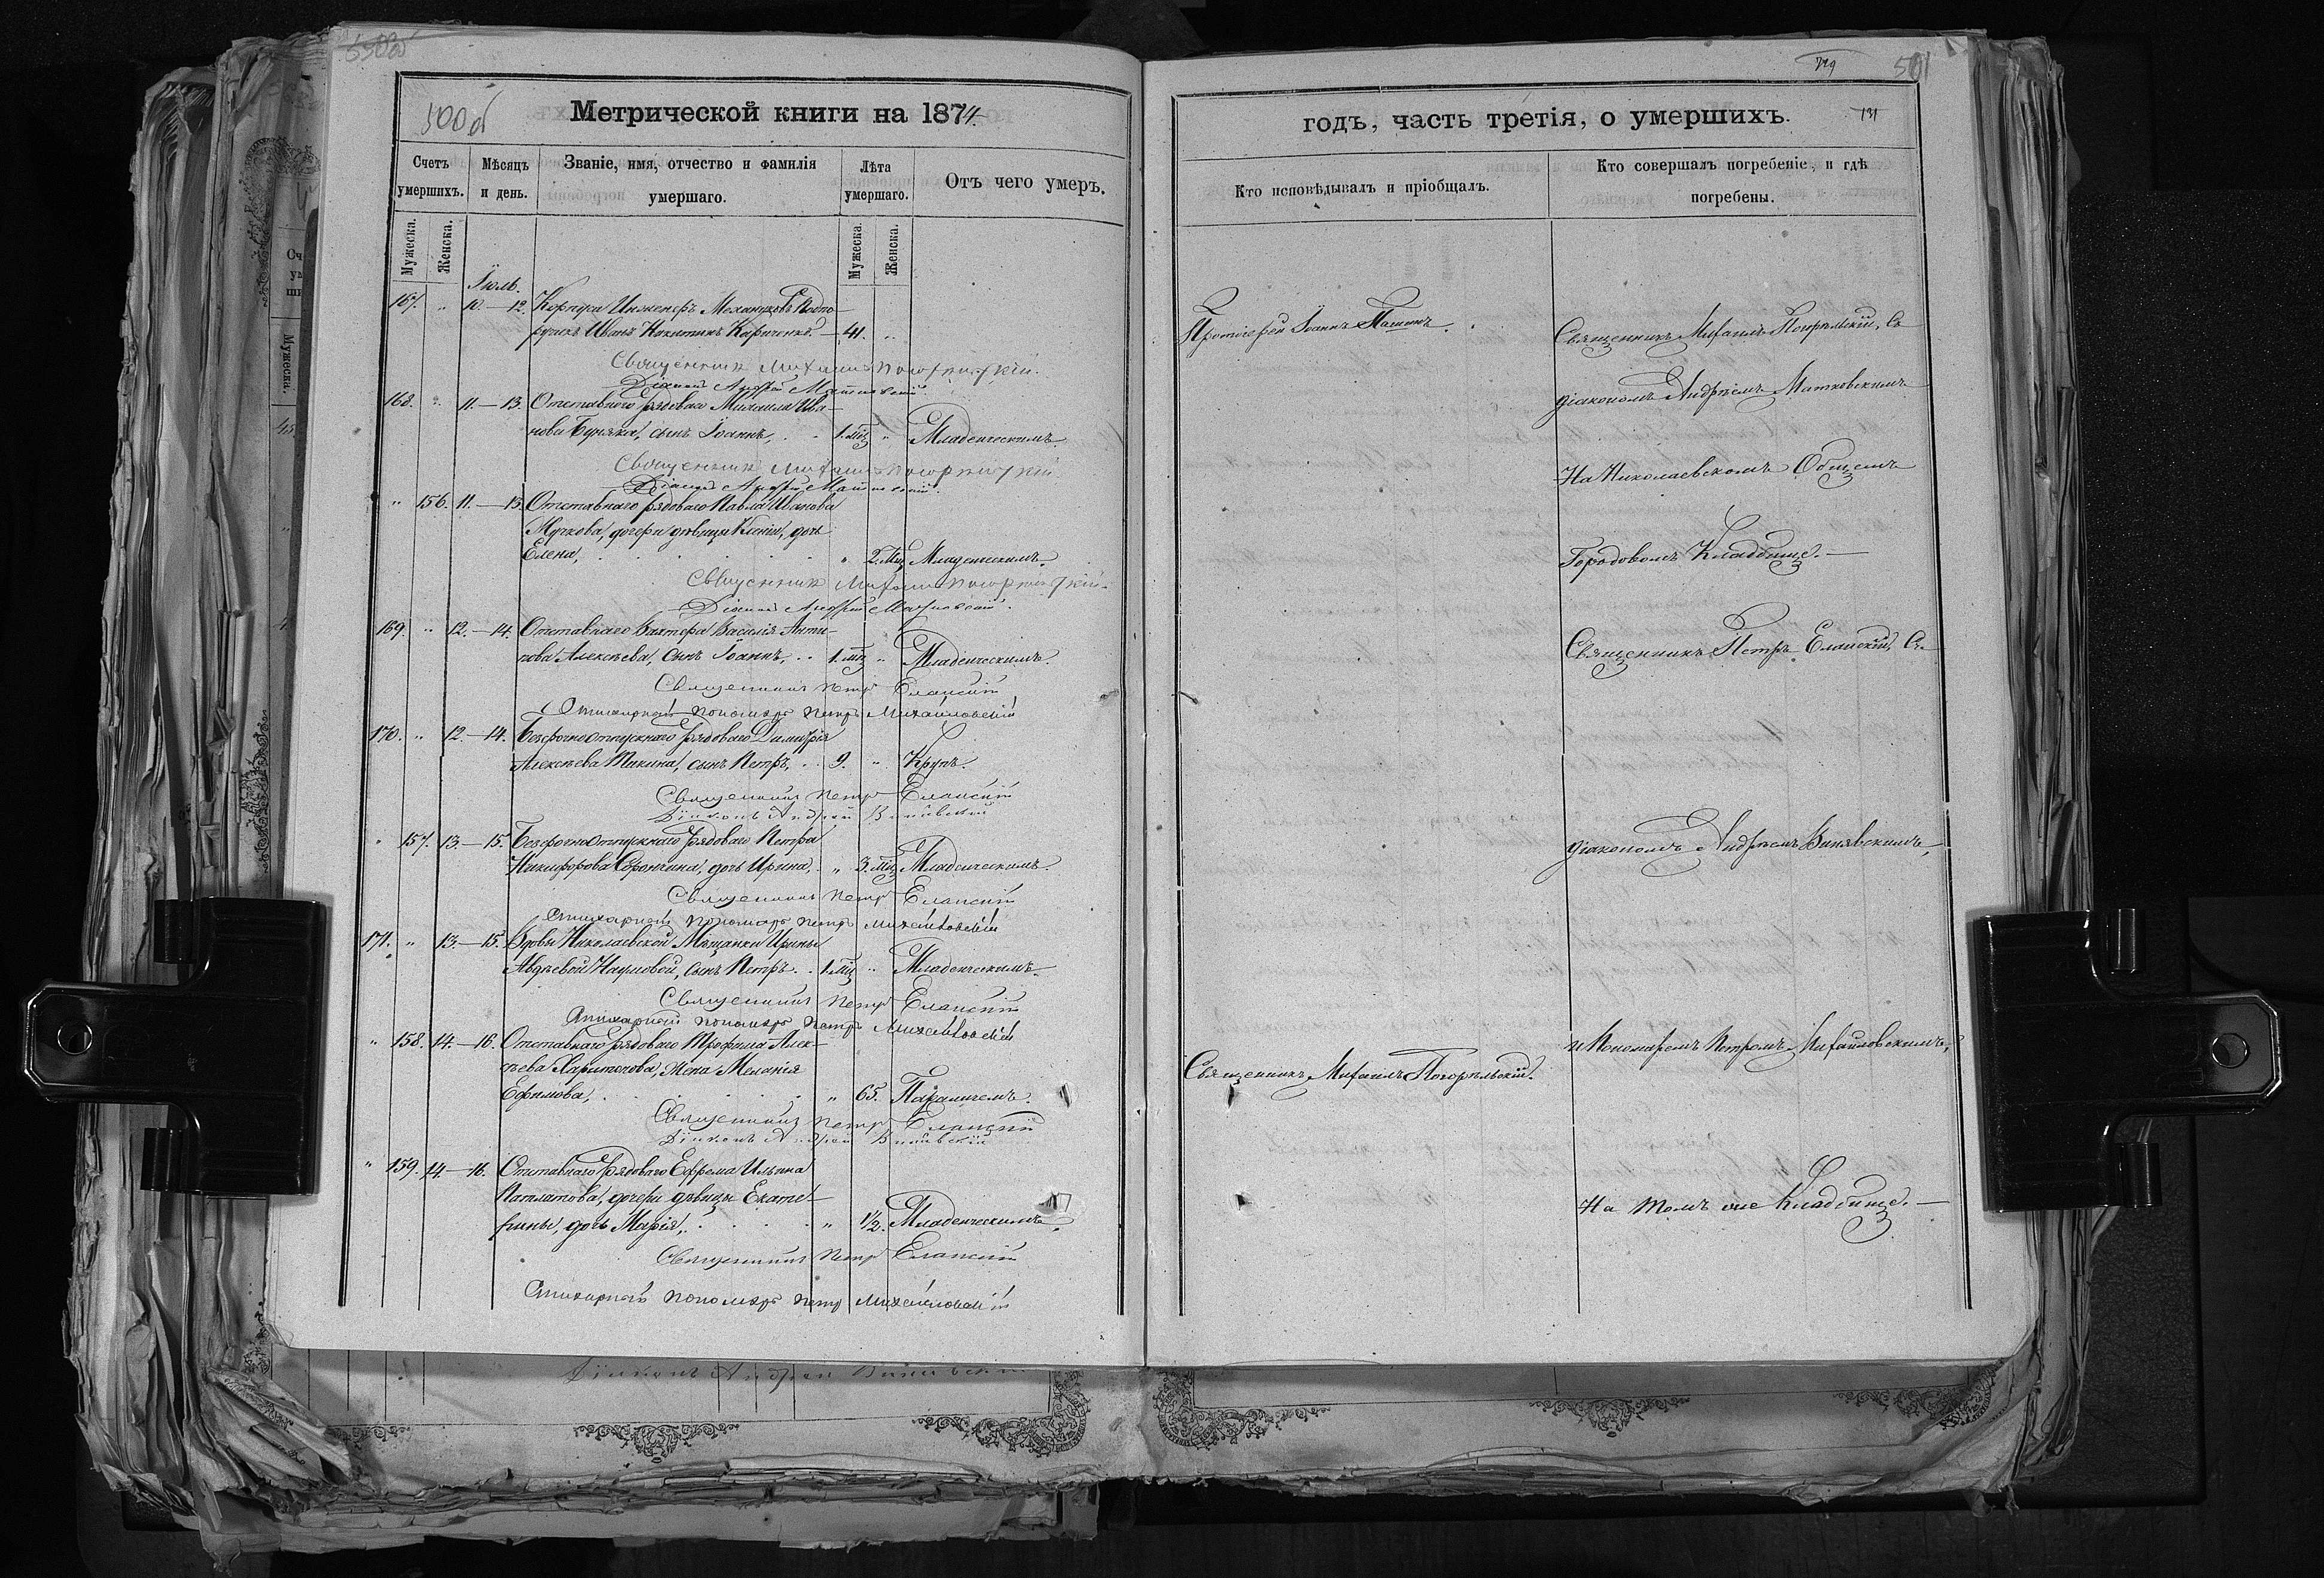 500об
Метрической книги на 1874.
Счетъ умершихъ.
Мѣсяцъ и день.
Званіе, имя, отчество и фамилія умершаго.
Лѣта умершаго.
Отъ чего умеръ.
Мужеска.
Женска.
Мужеска.
Женска.
Іюль.
167. " 10.—12. Корпуса Инженеръ Механиковъ Подпо-
ручикъ Иванъ Никитинъ — 41. "
Священникъ Михаилъ Погорѣльскій.
Діаконъ Андрей Матковскій.
168. " 11.—13. Отставнаго рядоваго Михаила Ива-
нова Буняка, сынъ Іоаннъ, 1. мѣс. " Младенческимъ.
Священникъ Михаилъ Погорѣльскій
Діаконъ Андрей Матковскій.
" 156. 11.—13. Отставнаго рядоваго Павла Иванова
Жучкова, дочери дѣвицы Ксеніи, дочь
Елена, " 2. мѣс. Младенческимъ.
Священникъ Михаилъ Погорѣльскій.
Діаконъ Андрей Матковскій.
169. " 12.—14. Отставнаго Вахтера Василія Анти-
пова Алексѣева, сынъ Іоаннъ, 1. мѣс. " Младенческимъ.
Священникъ Петръ Еланскій
Стихарный пономарь Петръ Михайловскій
170. " 12.—14. Безсрочноотпускнаго рядоваго Димитрія
Алексѣева Тикина, сынъ Петръ, 9. " Крупъ.
Священникъ Петръ Еланскій
Діаконъ Андрей Винявскій
" 157. 13.—15. Безсрочноотпускнаго рядоваго Петра
Никифорова Сорончина, дочь Ирина, " 3. мѣс. Младенческимъ.
Священникъ Петръ Еланскій
Стихарный пономарь Петръ Михайловскій
171. " 13.—15. Вдовы Николаевской Мѣщанки Ирины
Авдѣевой Наумовой, сынъ Петръ 1. мѣс. " Младенческимъ.
Священникъ Петръ Еланскій
Стихарный пономарь Петръ Михайловскій
" 158. 14.—16. Отставнаго рядоваго Трофима Алек-
сѣева Харитонова, жена Меланія
Ефимова, " 65. Параличемъ.
Священникъ Петръ Еланскій
Діаконъ Андрей Винявскій
" 159. 14.—16. Отставнаго рядоваго Ефрема Ильина
Патлатова, дочери дѣвицы Екате-
рины, дочь Марія, " 1/2. Младенческимъ.
Священникъ Петръ Еланскій
Стихарный пономарь Петръ Михайловскій
Діаконъ Андрей Винявскій
501
131
годъ, часть третія, о умершихъ.
Кто исповѣдывалъ и пріобщалъ.
Кто совершалъ погребеніе, и гдѣ погребены.
Протоіерей Іоаннъ
Священникъ Михаилъ Погорѣльскій, съ
діакономъ Андреемъ Матковскимъ
На Николаевскомъ Общемъ
Городовомъ Кладбище.—
Священникъ Петръ Еланскій, съ
діакономъ Андреемъ Винявскимъ,
и Пономаремъ Петромъ Михайловскимъ,
Священникъ Михаилъ Погорѣльскій.
На томъ же Кладбище.—